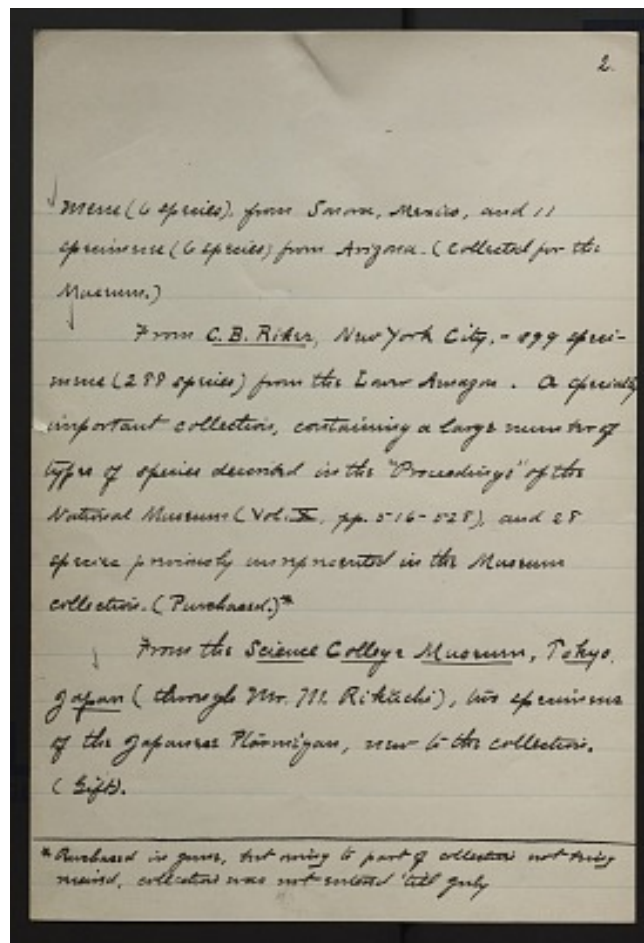 2.
mens (6 species), from Sonora, Mexico, and 11
specimens (6 species) from Arizona. (Collected for the
Museum.)
From C. B. Riker, New York City, - 899 speci-
mens (288 species) from the Lower Amazon. A specially
important collection, containing a large number of
types of species described in the "Proceedings" of the
National Museum (Vol. X, pp. 516-528), and 28
species previously unrepresented in the Museum
collection. (Purchased.)*
From the Science College Museum, Tokyo,
Japan (through Mr. M. Kikuchi), two specimens
of the Japanese Ptarmigan, new to the collection.
(Gift).
* Purchased in June, but owing to part of collection not being
received, collection was not entered 'till July